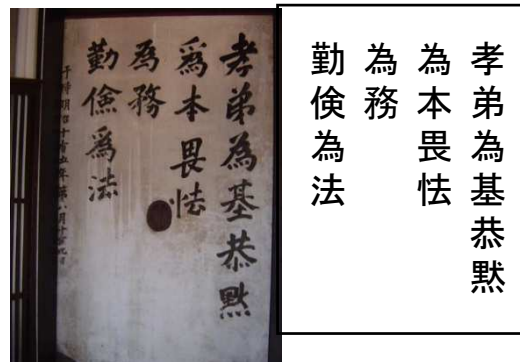 孝弟為基恭黙
爲本畏怯
為務
勤儉爲法
于時明治十有五年第八月
孝弟為基恭黙
為本畏怯
為務
勤倹為法